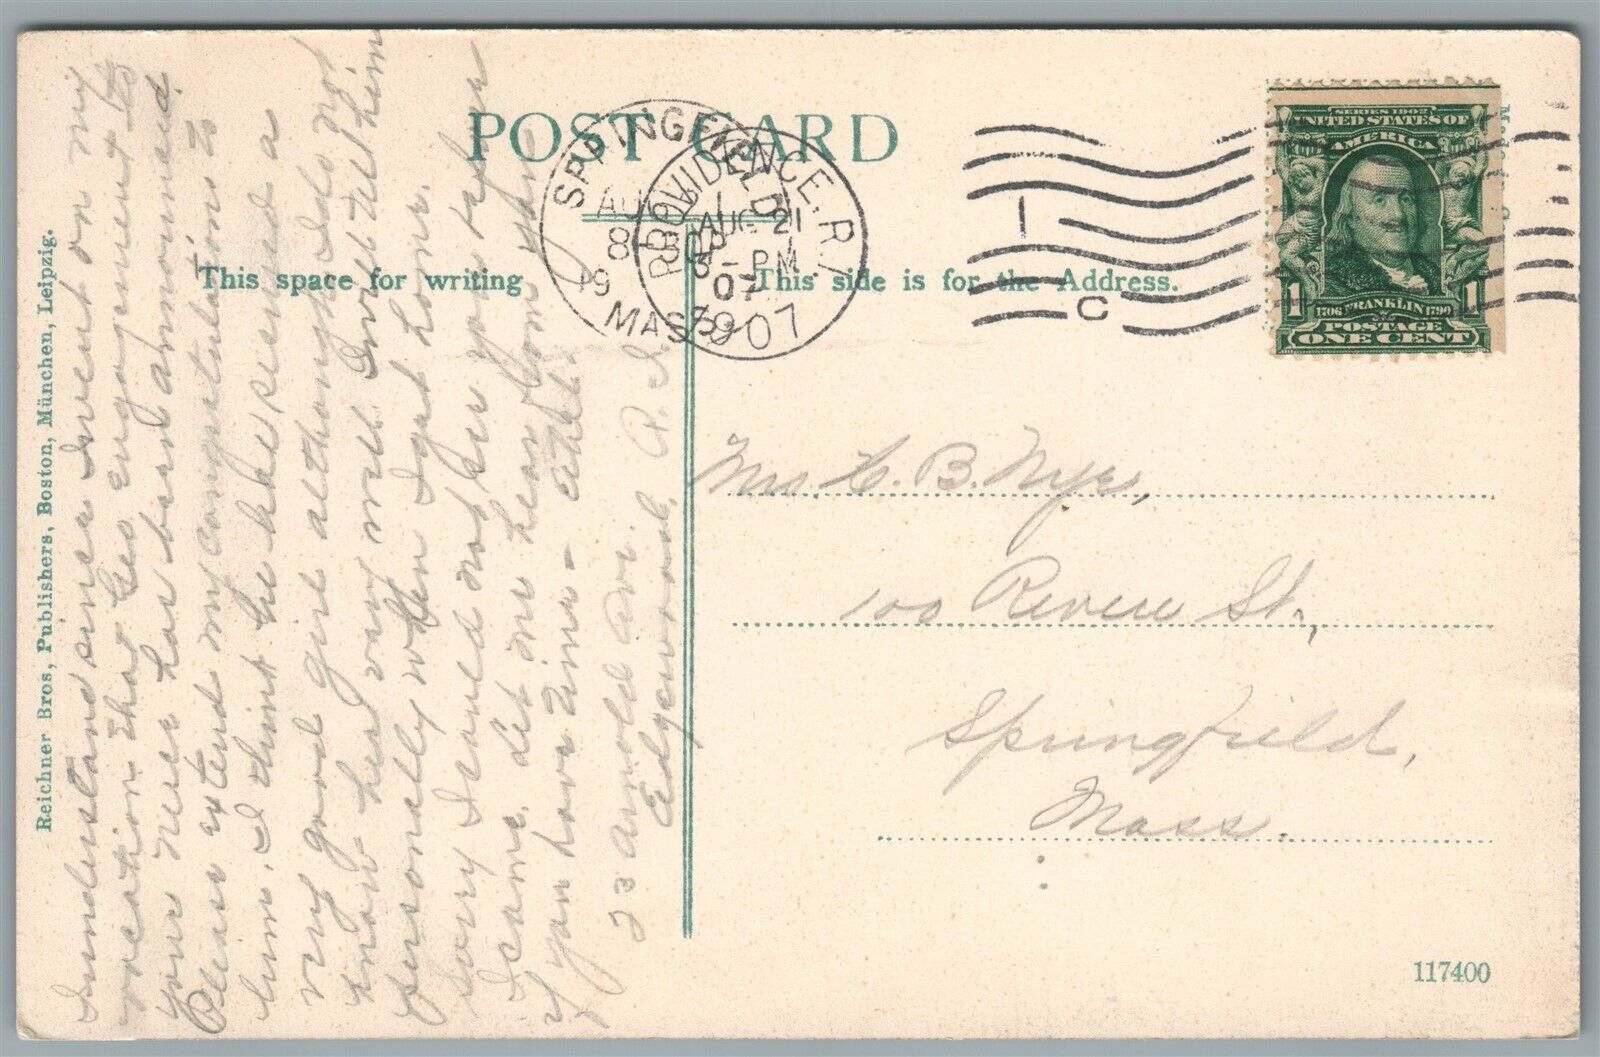 POST CARD
This space for writing
This side is for the Address.
SPRINGFIELD
AUG
8 30P
19
MASS.
1907
PROVIDENCE, R.I.
AUG 21
3 - PM
07
1
C
SERIES 1902
UNITED STATES OF
AMERICA
1 1
1706 FRANKLIN 1790
POSTAGE
ONE CENT
Mrs. C. B. Nye,
100 Revere St.,
Springfield,
Mass.
I understand since I went on my
vacation that Geo engagement to
your niece has been announced.
Please extend my congratulations to
him. I think he has secured a
very good girl although I do not
know her very well. I wrote to him
personally when I got home.
Sorry I could not see you before
I came. Let me hear from you
if you have time - Ethel.
23 Arnold Ave.
Edgewood, R. I.
Reichner Bros, Publishers, Boston, München, Leipzig.
117400